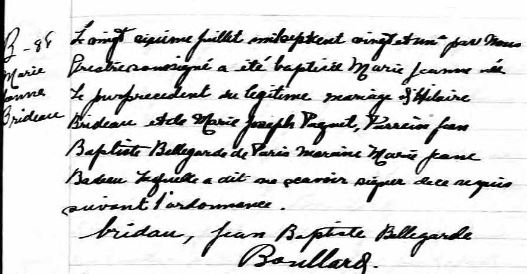 B-88
Marie
Jeanne
Brideau
Le vingt sixième juillet mil sept cent vingt et un par nous
Prestre soussigné a été baptisée Marie Jeanne née
le jour précédent du légitime mariage d'Hilaire
Brideau et de Marie Joseph Paquet, Parrein Jean
Baptiste Bellegarde de Paris maraine Marie Jeane
Badeau Laquelle a dit ne scavoir signer de ce requis
suivant l'ordonnance.
bridau, Jean Baptiste Bellegarde
Boullard.